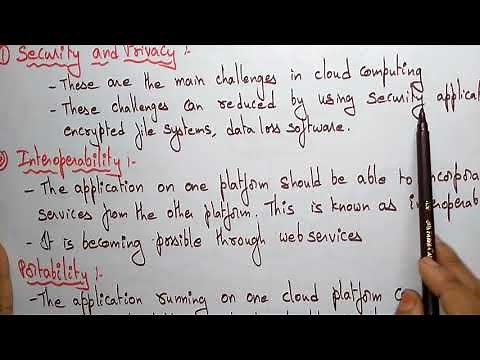 ① Security and Privacy :-
- These are the main challenges in cloud computing
- These challenges can reduced by using security applicat
encrypted file systems, data loss software.
Interoperability :-
- The application on one platform should be able to incorpora
services from the other platform. This is known as interoperab
- It is becoming possible through web services
Portability :-
- The application running on one cloud platform c